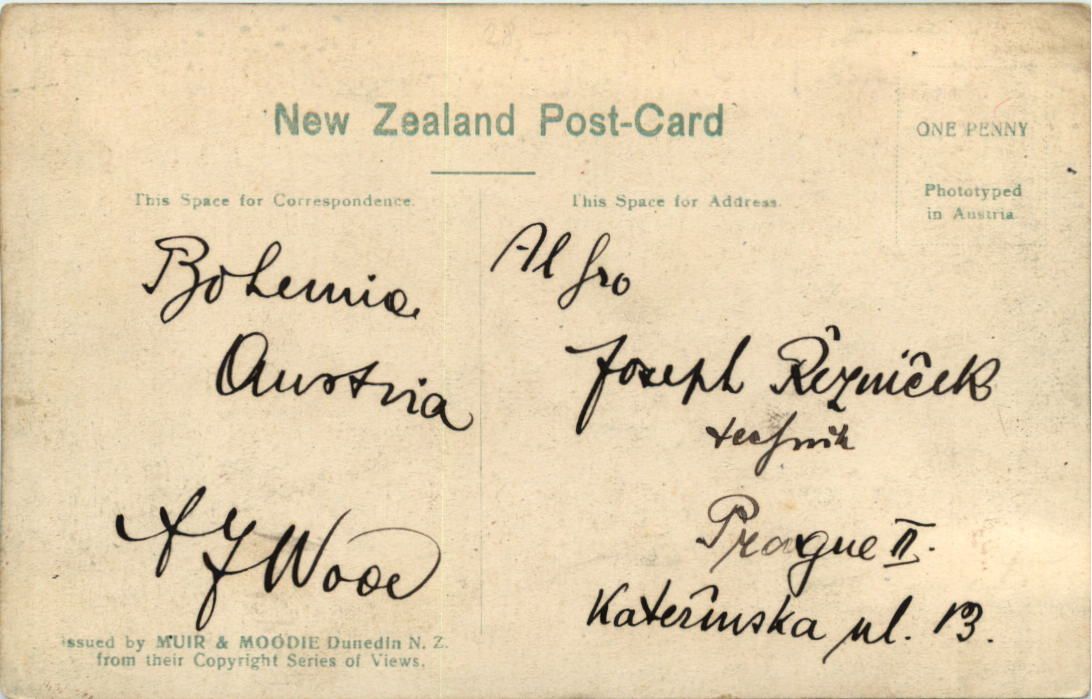 New Zealand Post-Card
ONE PENNY
Phototyped
in Austria
This Space for Correspondence.
This Space for Address.
Bohemia
Austria
A J Wood
Joseph Řezníček
technik
Prague II.
Kateřinska ul. 13.
Issued by MUIR & MOODIE Dunedin N. Z.
from their Copyright Series of Views.